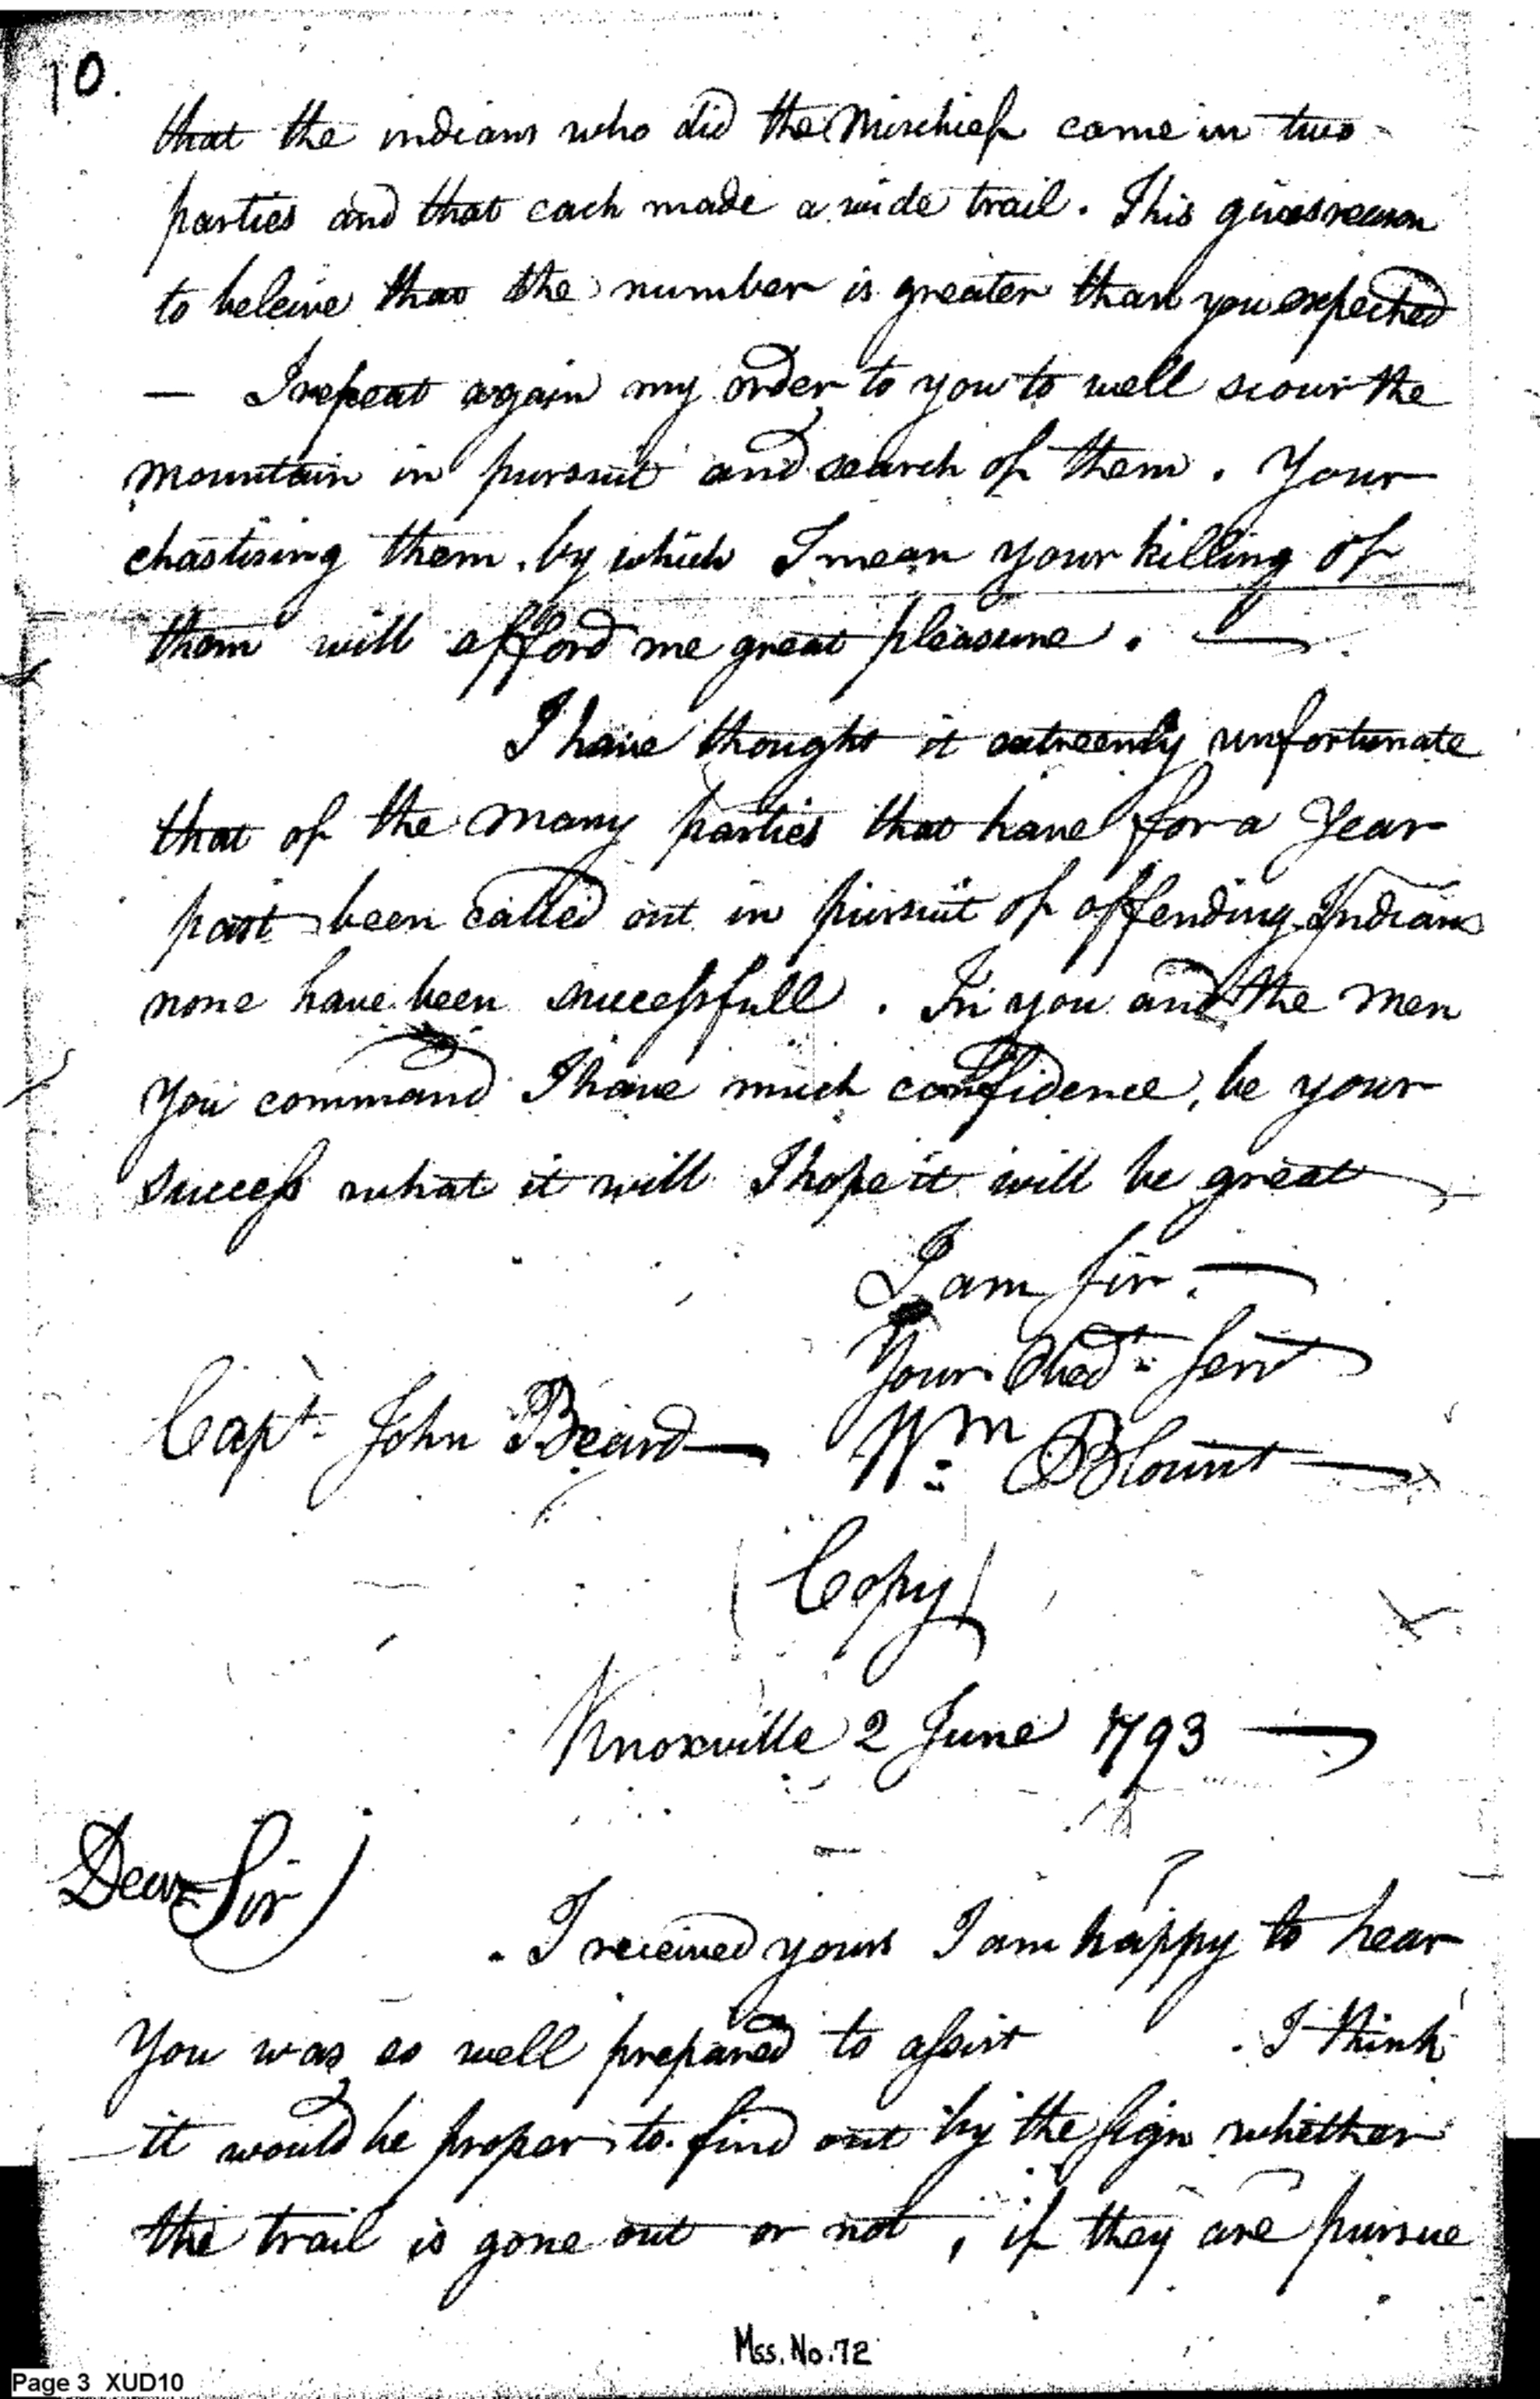 10.
that the indians who did the Mischief came in two
parties and that each made a wide trail. This gives reason
to beleive that the number is greater than you expected
— I repeat again my order to you to well scour the
mountain in pursuit and search of them. Your
chastising them, by which I mean your killing of
them will afford me great pleasure. —
I have thought it extreemly unfortunate
that of the many parties that have for a Year
past been called out in pursuit of offending Indians
none have been successfull. In you and the men
you command I have much confidence, be your
success what it will I hope it will be great
I am Sir. —
Your Obedt. Servt
Capt. John Beard — Wm. Blount —
(Copy)
Knoxville 2 June 1793 —
Dear Sir)
. I received yours I am happy to hear
You was so well prepared to assist . I think
it would be proper to find out by the sign whether
the trail is gone out or not, if they are pursue
Mss. No. 72
Page 3 XUD10